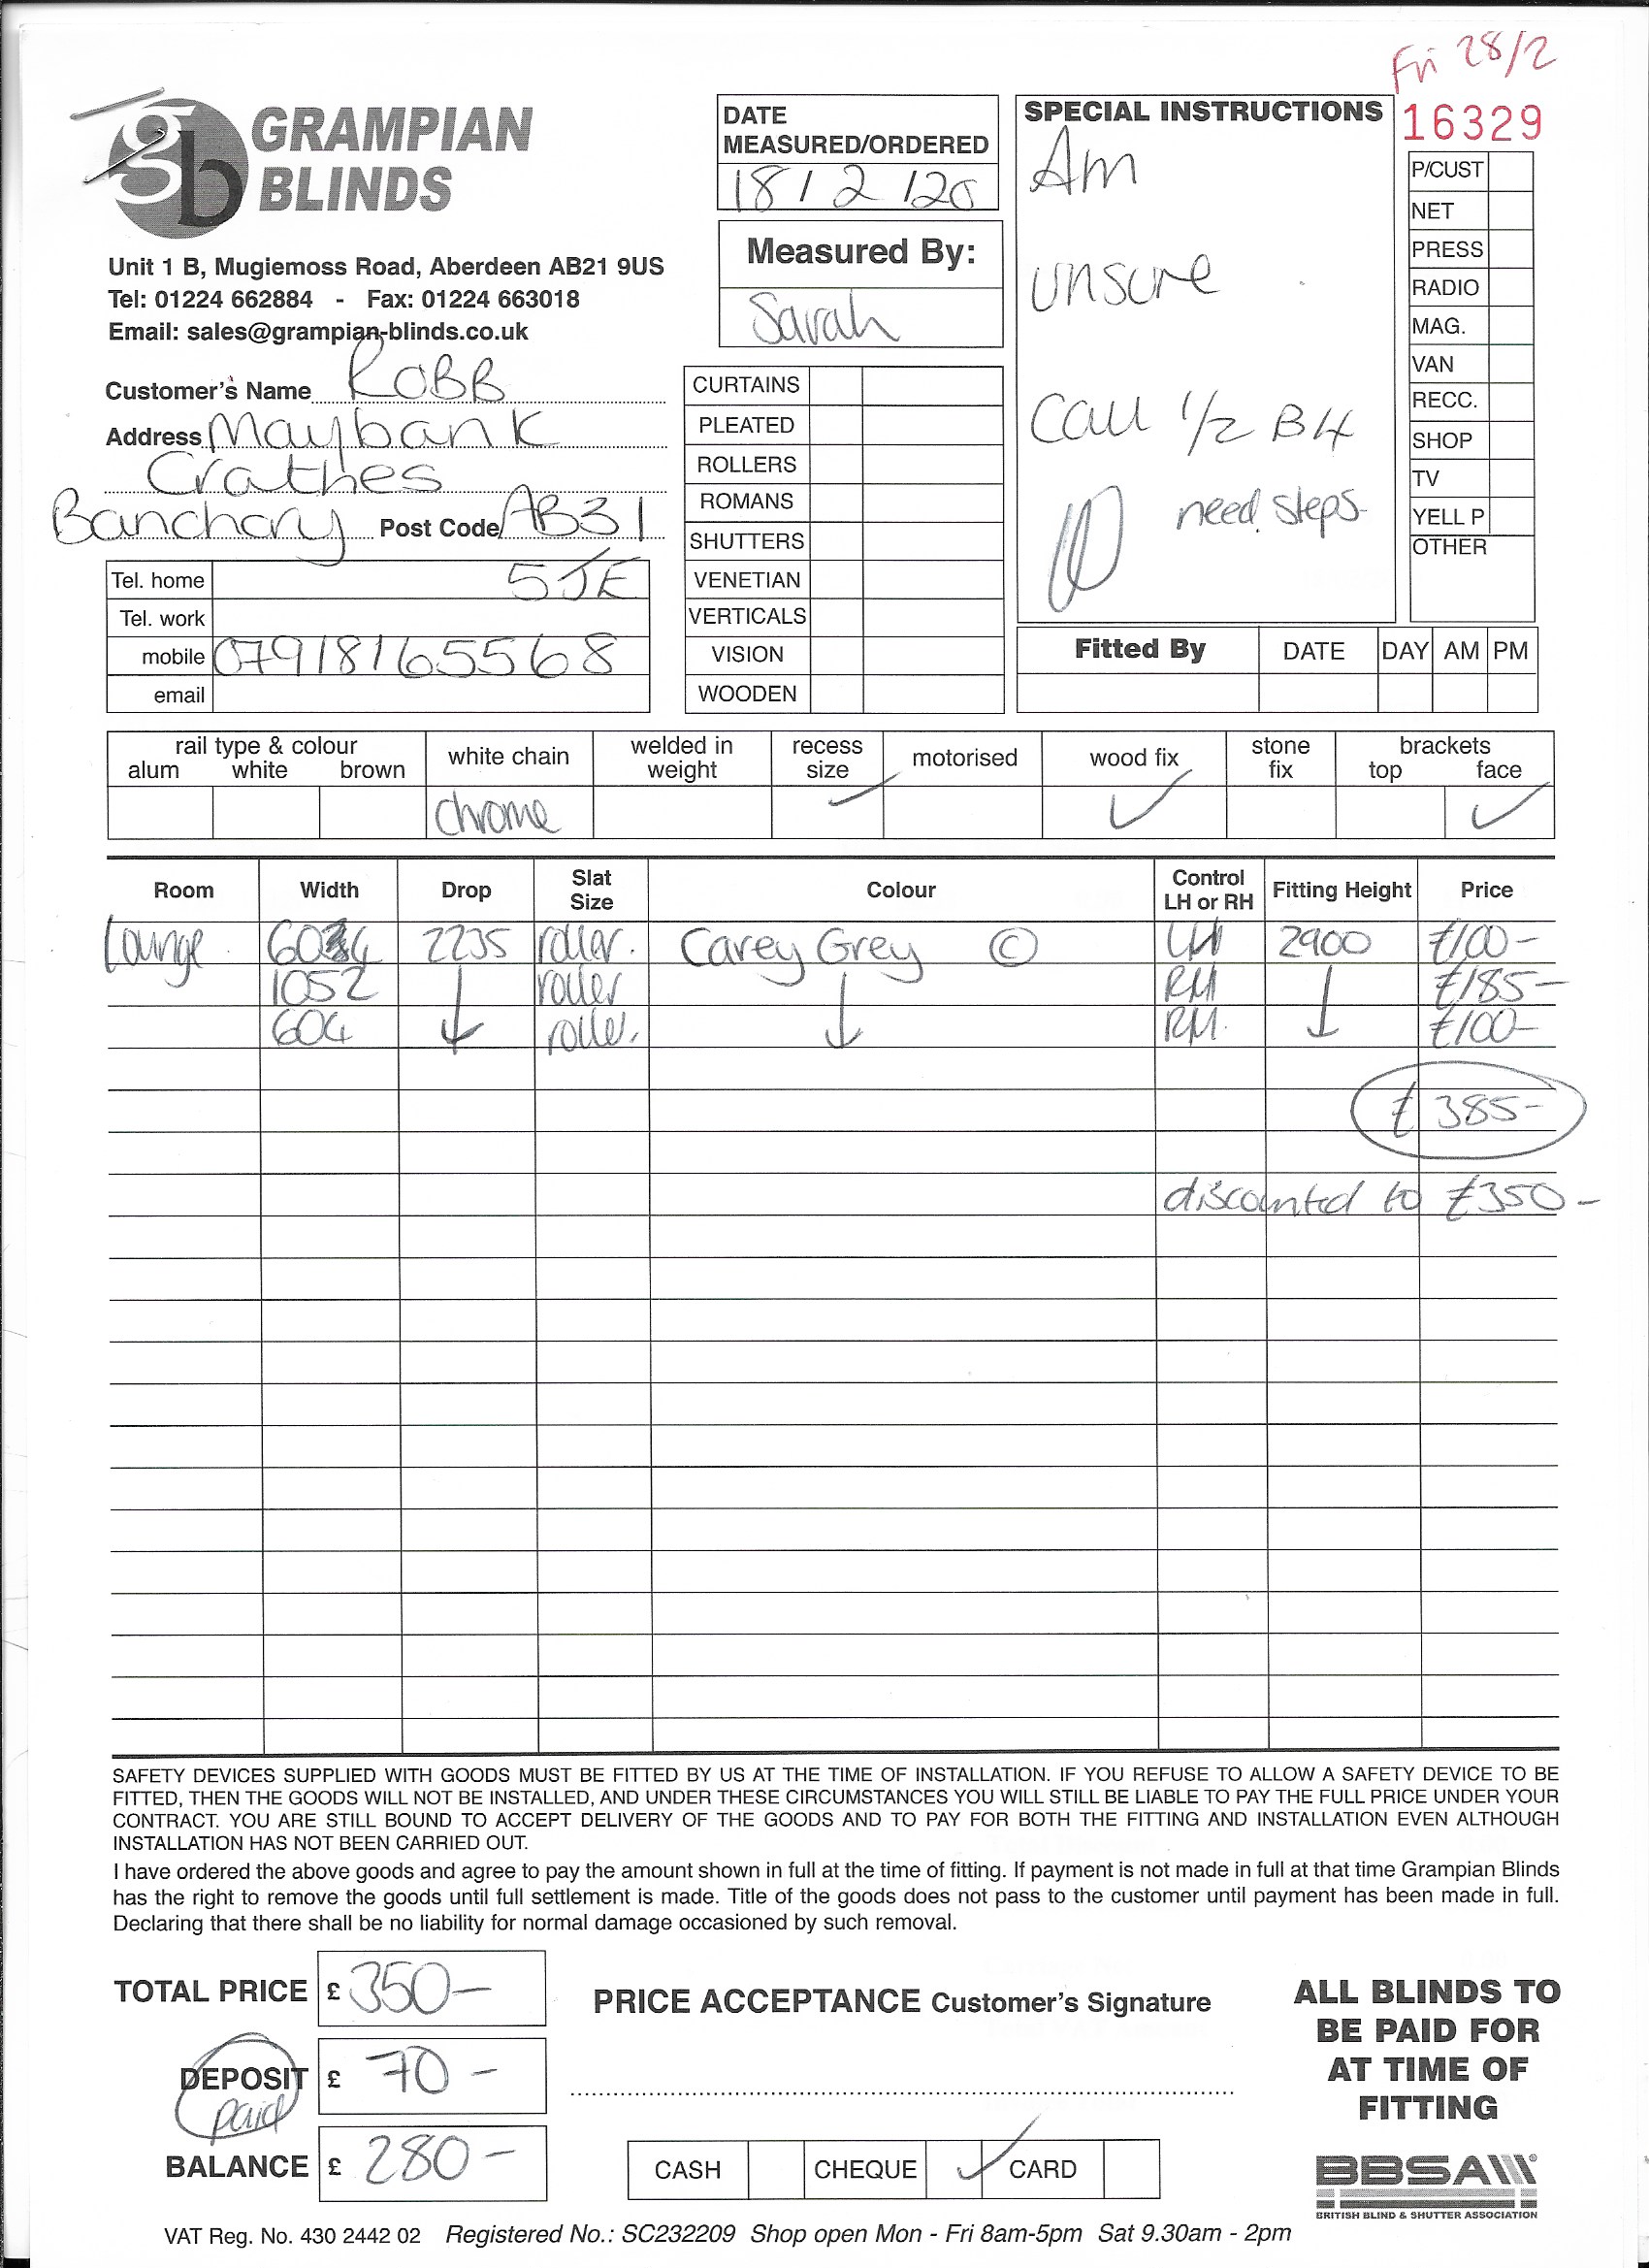 Fri 28/2
16329
gb GRAMPIAN
BLINDS
Unit 1 B, Mugiemoss Road, Aberdeen AB21 9US
Tel: 01224 662884 - Fax: 01224 663018
Email: sales@grampian-blinds.co.uk
Customer's Name ROBB
Address Maybank
Crathes
Banchory Post Code AB31
5JE
Tel. home
Tel. work
mobile 07918165568
email
DATE
MEASURED/ORDERED
18/2/20
Measured By:
Sarah
CURTAINS
PLEATED
ROLLERS
ROMANS
SHUTTERS
VENETIAN
VERTICALS
VISION
WOODEN
SPECIAL INSTRUCTIONS
Am
unsure
Call 1/2 B4
need steps
P/CUST
NET
PRESS
RADIO
MAG.
VAN
RECC.
SHOP
TV
YELL P
OTHER
Fitted By DATE DAY AM PM
rail type & colour white chain welded in weight recess size motorised wood fix stone fix brackets
alum white brown top face
chrome ✓ ✓ ✓
Room Width Drop Slat Size Colour Control LH or RH Fitting Height Price
Lounge 604 2235 roller. Carey Grey © LH 2900 £100-
1052 ↓ roller ↓ RH ↓ £185-
604 roller. RH. £100-
£385-
discounted to £350-
SAFETY DEVICES SUPPLIED WITH GOODS MUST BE FITTED BY US AT THE TIME OF INSTALLATION. IF YOU REFUSE TO ALLOW A SAFETY DEVICE TO BE
FITTED, THEN THE GOODS WILL NOT BE INSTALLED, AND UNDER THESE CIRCUMSTANCES YOU WILL STILL BE LIABLE TO PAY THE FULL PRICE UNDER YOUR
CONTRACT. YOU ARE STILL BOUND TO ACCEPT DELIVERY OF THE GOODS AND TO PAY FOR BOTH THE FITTING AND INSTALLATION EVEN ALTHOUGH
INSTALLATION HAS NOT BEEN CARRIED OUT.
I have ordered the above goods and agree to pay the amount shown in full at the time of fitting. If payment is not made in full at that time Grampian Blinds
has the right to remove the goods until full settlement is made. Title of the goods does not pass to the customer until payment has been made in full.
Declaring that there shall be no liability for normal damage occasioned by such removal.
TOTAL PRICE £ 350-
DEPOSIT £ 70-
paid
BALANCE £ 280-
PRICE ACCEPTANCE Customer's Signature
CASH CHEQUE ✓ CARD
ALL BLINDS TO
BE PAID FOR
AT TIME OF
FITTING
BBSA
BRITISH BLIND & SHUTTER ASSOCIATION
VAT Reg. No. 430 2442 02 Registered No.: SC232209 Shop open Mon - Fri 8am-5pm Sat 9.30am - 2pm